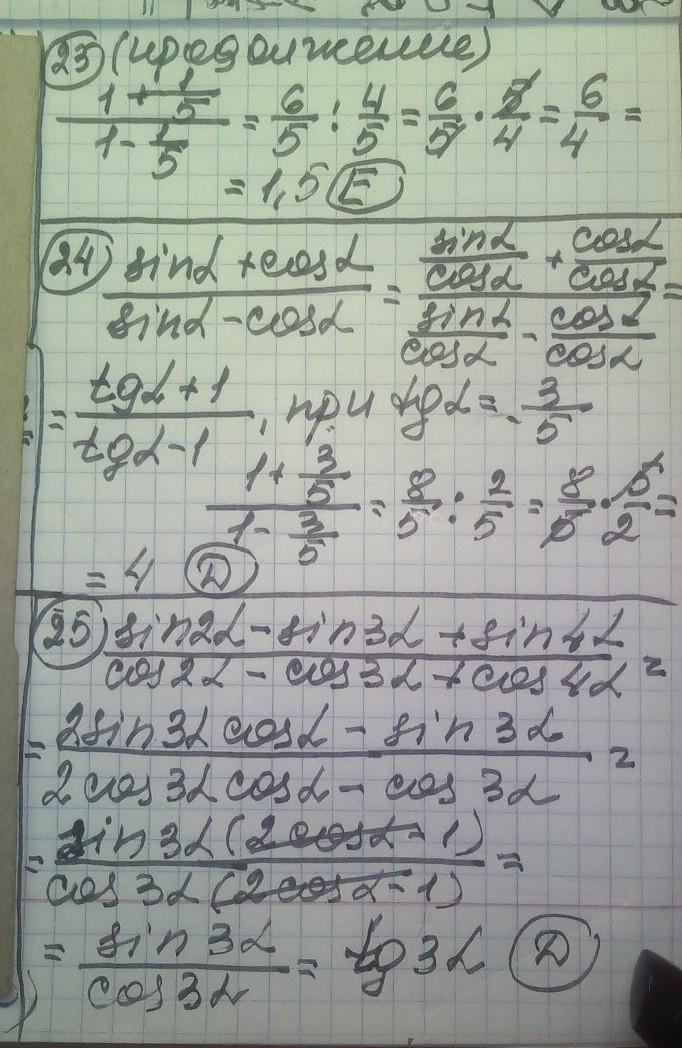 23 (продолжение)
(1 + 1/5)/(1 - 1/5) = 6/5 : 4/5 = 6/5 · 5/4 = 6/4 =
= 1,5 E
24 (sinα + cosα)/(sinα - cosα) = (sinα/cosα + cosα/cosα)/(sinα/cosα - cosα/cosα) =
= (tgα + 1)/(tgα - 1), при tgα = -3/5
(1 + 3/5)/(1 - 3/5) = 8/5 : 2/5 = 8/5 · 5/2 =
= 4 D
25 (sin2α - sin3α + sin4α)/(cos2α - cos3α + cos4α) =
= (2sin3α cosα - sin3α)/(2cos3α cosα - cos3α) =
= sin3α(2cosα - 1)/cos3α(2cosα - 1) =
= sin3α/cos3α = tg3α D